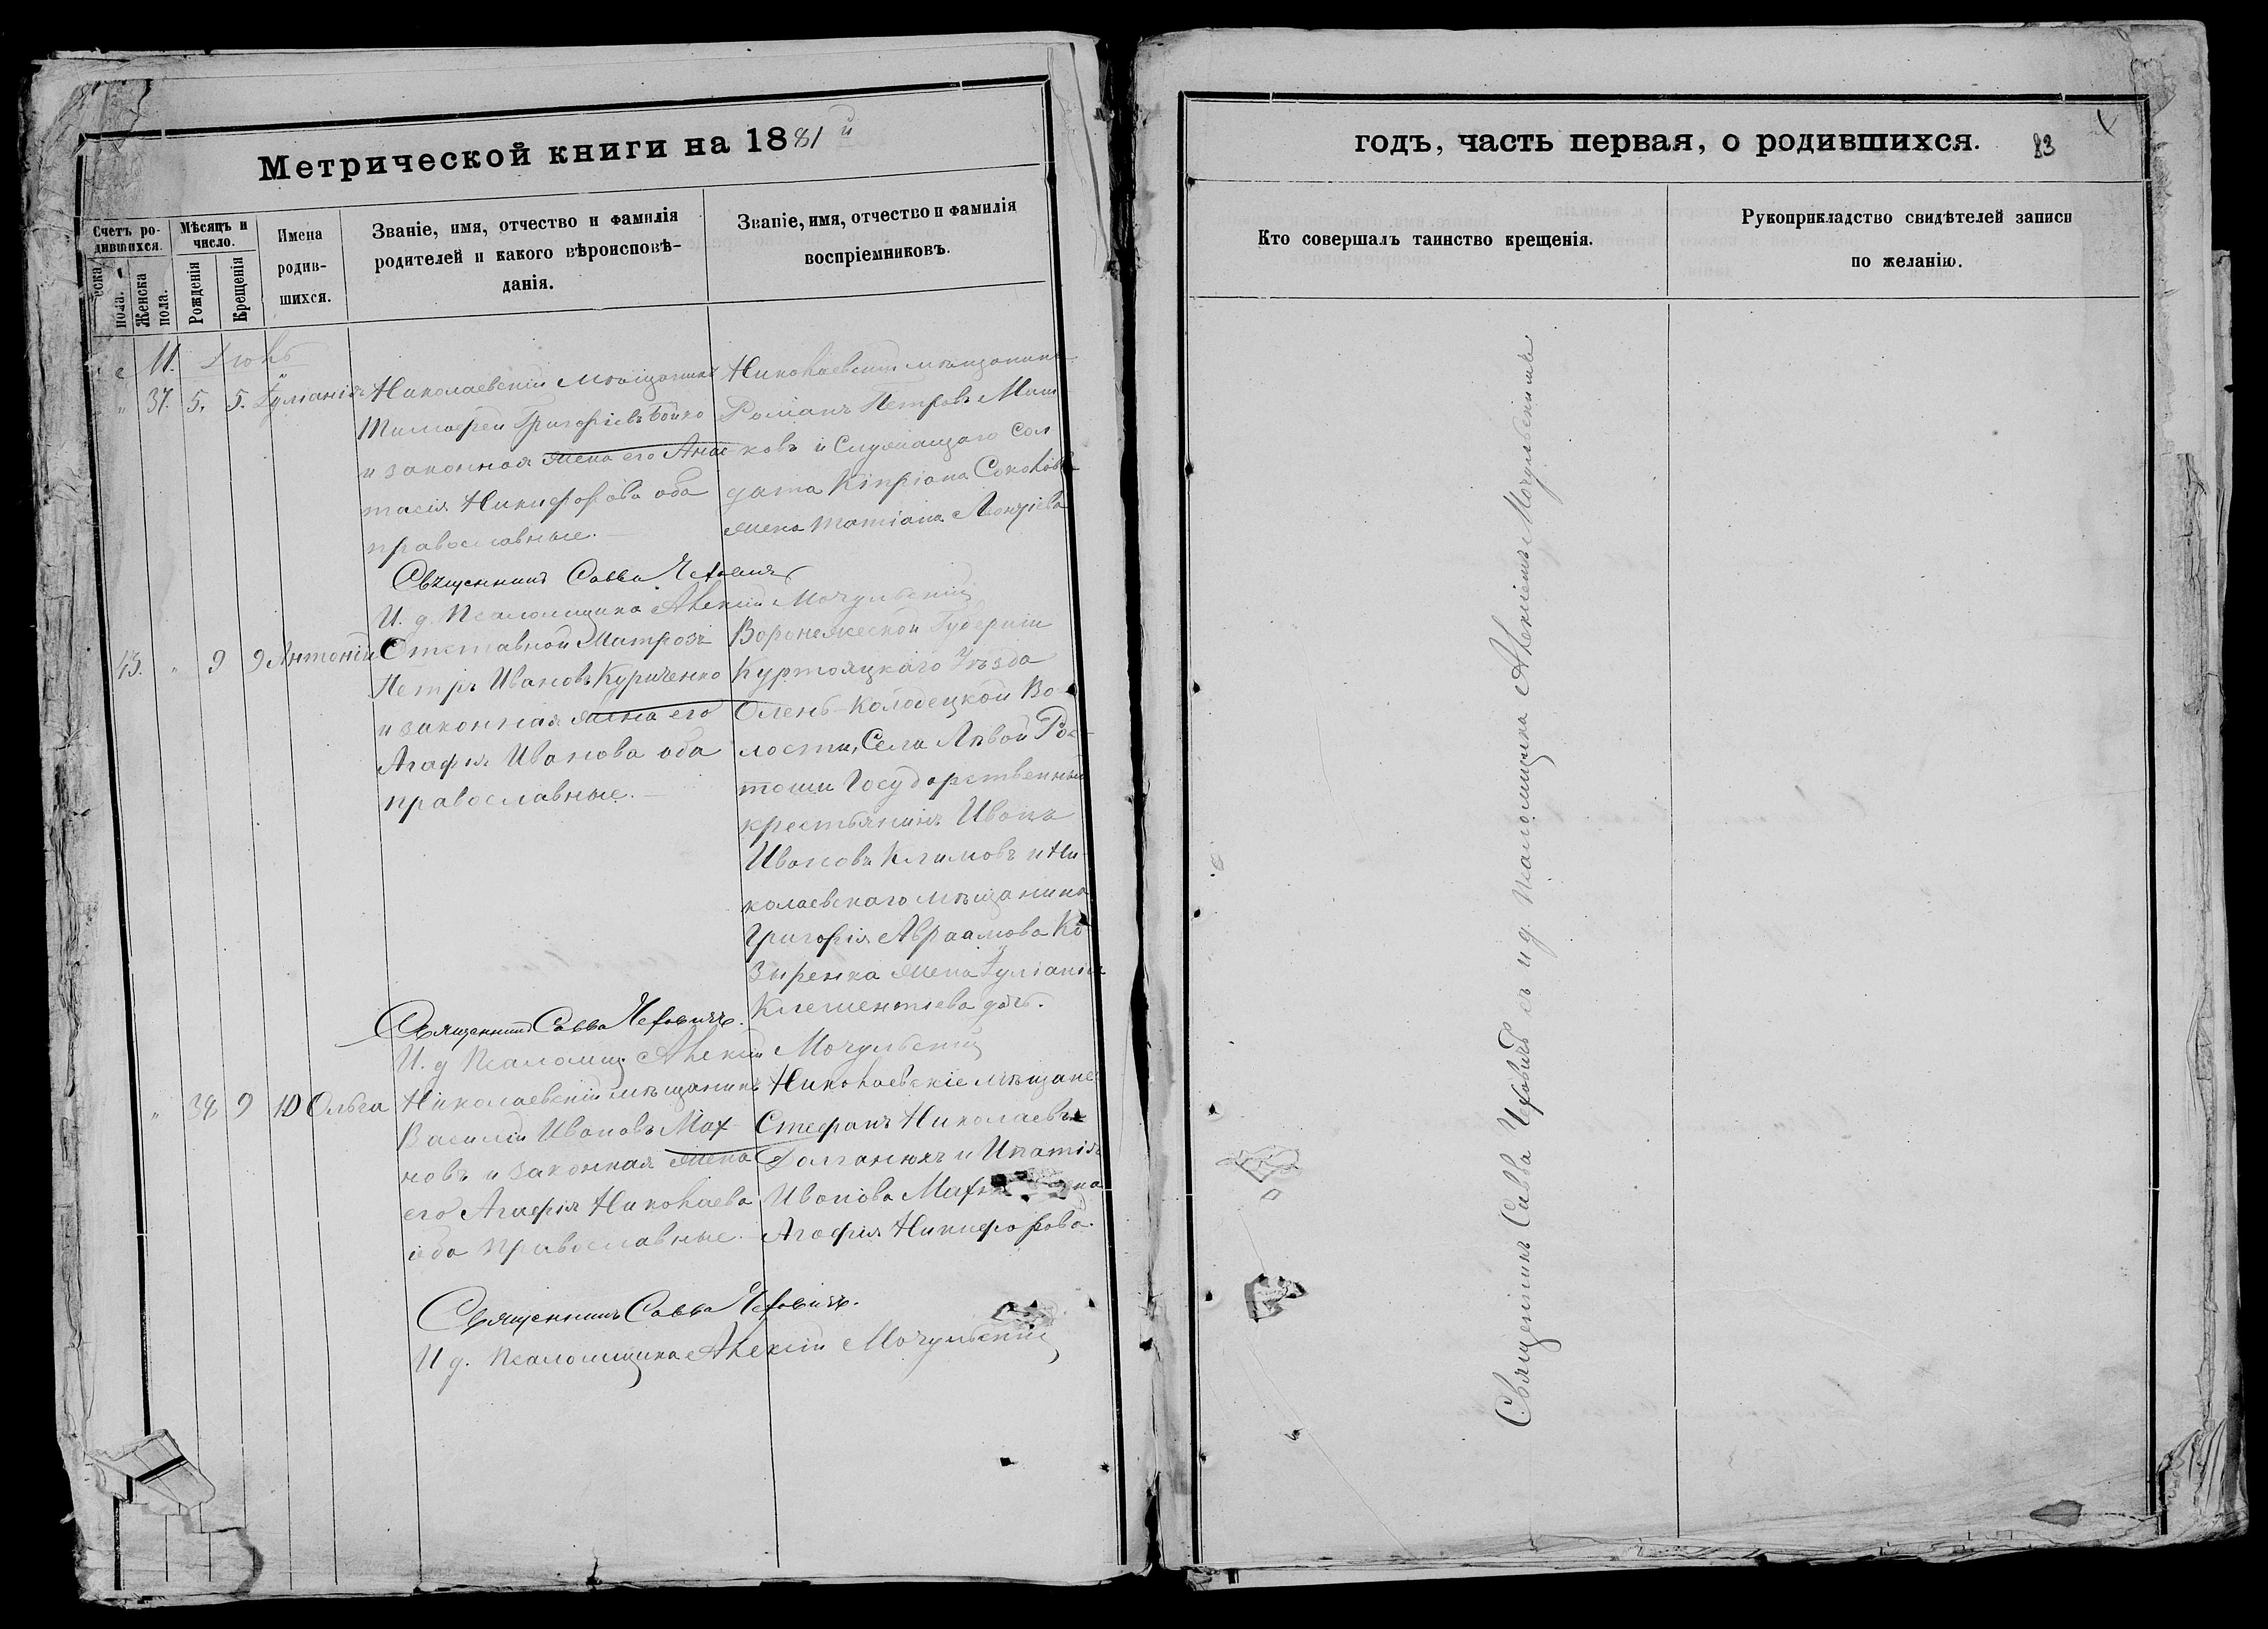 Метрической книги на 1881й
Счетъ ро-
дившихся.
Мѣсяцъ и
число.
Имена
родив-
шихся.
Званіе, имя, отчество и фамилія
родителей и какого вѣроисповѣ-
данія.
Званіе, имя, отчество и фамилія
воспріемниковъ.
еска
пола.
Женска
пола.
Рожденія
Крещенія
М. Ж. Іюнь
" 37. 5. 5. Іуліанія
Николаевскій мѣщанинъ
Тимофей Григорьевъ Бойко
и законная жена его Анас
тасія Никифорова оба
православные.
Николаевскій мѣщанинъ
Романъ Петровъ Маш
ковъ и Служащаго Сол
дата Кипріана Соколова
жена Татіана Леонтіева
Священникъ Савва Чехович
И. д. Псаломщика Алексій Мочульскій
43. " 9 9 Антоній
Отставной Матрозъ
Петръ Ивановъ Куриченко
и законная жена его
Агафія Иванова оба
православные.
Воронежеской Губерніи
Куртояцкаго Уѣзда
Олень-Колодецкой Во-
лости, Села Лѣвой Рос-
тоши Государственный
крестьянинъ Иванъ
Ивановъ Климовъ и Ни-
колаевскаго мѣщанина
Григорія Авраамова Ко-
зыренка жена Іуліанія
Клементіева дочь.
Священникъ Савва Чеховичъ.
И. д Псаломщ. Алексій Мочульскій
" 38 9 10 Ольга
Николаевскій мѣщанинъ
Василій Ивановъ Мах-
новъ и законная жена
его Агафія Николаева
оба православные.
Николаевскіе мѣщане
Стефанъ Николаевъ
Долганюкъ и Ипатія
Иванова Мах
Агафія Никифорова.
Священникъ Савва Чеховичъ.
И д. Псаломщика Алексій Мочульскій
годъ, часть первая, о родившихся.
83
Кто совершалъ таинство крещенія.
Рукоприкладство свидѣтелей записи
по желанію.
Священникъ Савва Чеховичъ съ и д. псаломщика Алексіемъ Мочульскимъ